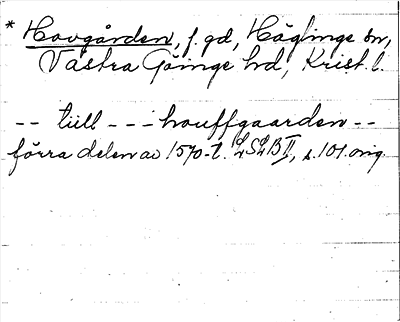 * Hovgården, f. gd, Häglinge sn,
Västra Göinge hd, Krist. l.
-- tiill --- houffgaarden --
förra delen av 1570-t. LSLB II, s. 101. orig.